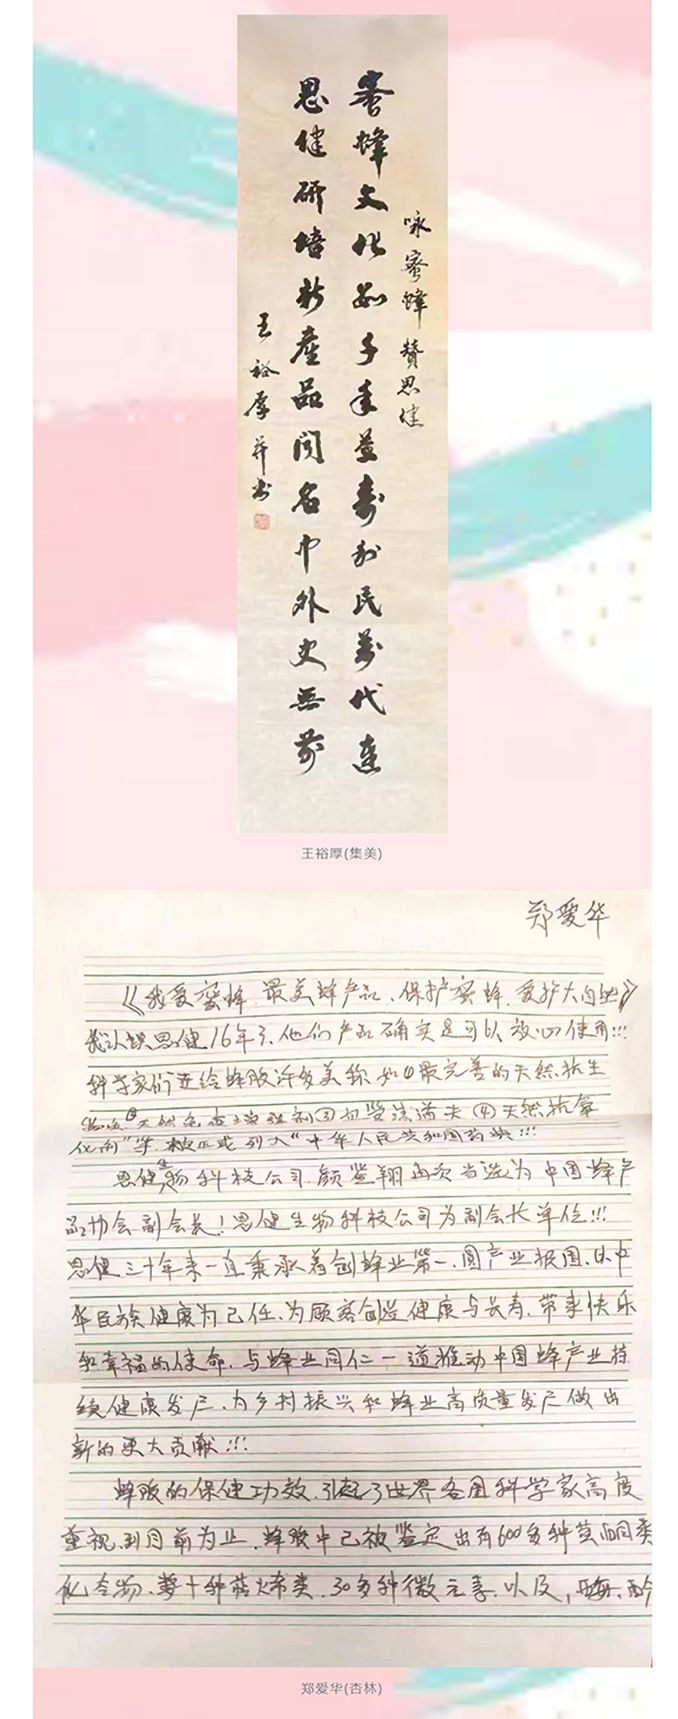 咏蜜蜂赞思健
蜜蜂文化五千年益寿利民万代连
思健研培新產品闻名中外史無前
王裕厚并书
王裕厚(集美)
郑爱华
《我爱蜜蜂.最美蜂产品、保护蜜蜂.爱护大自然》
我认识思健16年了.他们产品确实是可以放心使用!!!
科学家们还给蜂胶许多美称.如①最完善的天然抗生
物质②天然免疫增强剂③血管清道夫④天然抗氧
化剂"等.被正式列入"中华人民共和国药典!!!
思健生物科技公司.颜登翔再次当选为中国蜂产
品协会副会长!思健生物科技公司为副会长单位!!!
思健三十年来一直秉承着创蜂业第一.圆产业报国.以中
华民族健康为己任.为顾客创造健康与长寿.带来快乐
和幸福的使命.与蜂业同仁一道推动中国蜂产业持
续健康发展.为乡村振兴和蜂业高质量发展做出
新的更大贡献!!!
蜂胶的保健功效.引起了世界各国科学家高度
重视.到目前为止.蜂胶中已被鉴定出有600多种黄酮类
化合物.数十种萜烯类.30多种微元素.以及,酶.酚
郑爱华(杏林)